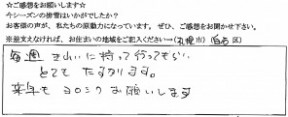 ☆ご感想をお願いします☆
今シーズンの排雪はいかがでしたか?
お客様の声が、私たちの原動力になっています。ぜひ、ご感想をお聞かせ下さい。
※差支えなければ、お住まいの地域をご記入ください→(札幌市)(白石区)
毎週 きれいに持って行ってもらい
とても たすかります。
来年も ヨロシク お願いします